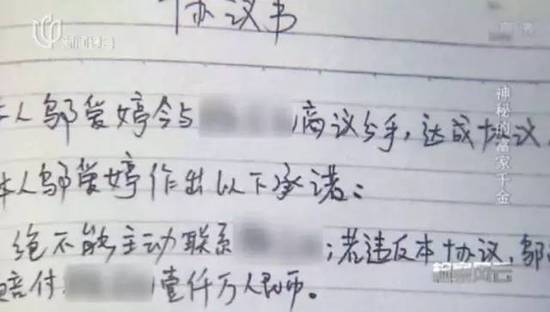 协议书
本人邬爱婷今与 商议分手,达成协议
本人邬爱婷作出以下承诺:
绝不能主动联系 ;若违反本协议,邬
赔付 壹仟万人民币。
神秘的富家千金
新闻坊